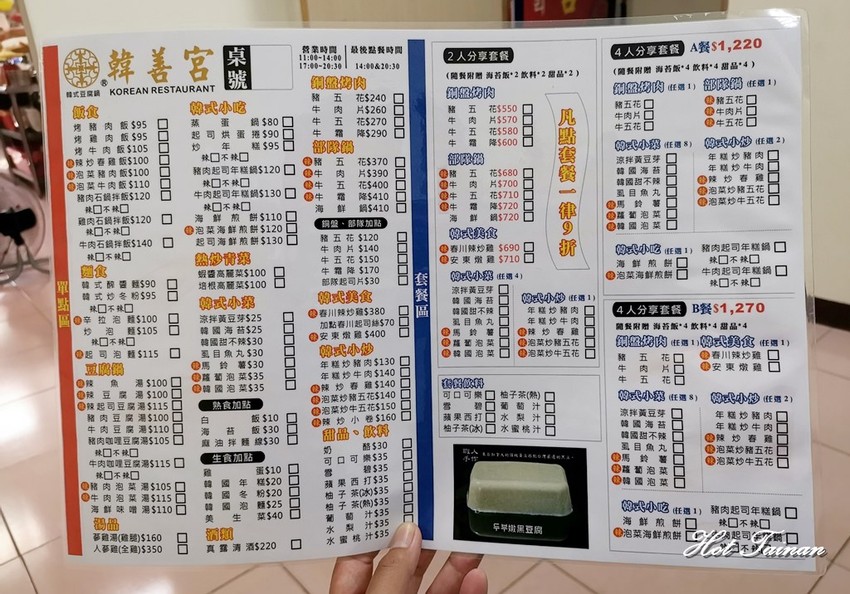 韓善宮
韓式豆腐鍋
®
KOREAN RESTAURANT
桌號
營業時間
11:00~14:00
17:00~20:30
最後點餐時間
14:00&20:30
單點區
飯食
烤豬肉飯$95
烤雞肉飯$95
烤牛肉飯$105
辣炒春雞飯$100
泡菜豬肉飯$100
泡菜牛肉飯$110
豬肉石鍋拌飯$120
辣□不辣□
雞肉石鍋拌飯$120
辣□不辣□
牛肉石鍋拌飯$140
辣□不辣□
麵食
韓式醡醬麵$90
韓式炒冬粉$95
辣□不辣□
辛拉泡麵$100
炒泡麵$105
辣□不辣□
起司泡麵$115
豆腐鍋
辣魚湯$100
辣豆腐湯$100
辣起司豆腐湯$115
豬肉豆腐湯$100
牛肉豆腐湯$110
豬肉咖哩豆腐湯$105
辣□不辣□
牛肉咖哩豆腐湯$115
辣□不辣□
豬肉泡菜湯$105
牛肉泡菜湯$115
海鮮味噌湯$110
湯品
蔘雞湯(雞腿)$160
人蔘雞(全雞)$350
韓式小吃
蒸蛋鍋$80
起司烘蛋捲$90
炒年糕$95
辣□不辣□
豬肉起司年糕鍋$120
辣□不辣□
牛肉起司年糕鍋$130
辣□不辣□
海鮮煎餅$110
泡菜海鮮煎餅$120
起司海鮮煎餅$130
熱炒青菜
蝦醬高麗菜$100
培根高麗菜$100
韓式小菜
涼拌黃豆芽$25
韓國海苔$25
韓國甜不辣$30
虱目魚丸$30
馬鈴薯$30
蘿蔔泡菜$35
韓國泡菜$35
熟食加點
白飯$10
海苔飯$30
麻油拌麵線$30
生食加點
雞蛋$10
韓國年糕$20
韓國冬粉$20
韓國泡麵$25
美生菜$40
酒類
真露清酒$220
銅盤烤肉
豬五花$240
牛肉片$260
牛五花$270
牛霜降$290
部隊鍋
豬五花$370
牛肉片$390
牛五花$400
牛霜降$410
海鮮鍋$410
銅盤、部隊加點
豬五花$120
牛肉片$140
牛五花$150
牛霜降$170
部隊起司片$30
韓式美食
春川辣炒雞$380
加點春川起司絲$70
安東燉雞$400
韓式小炒
年糕炒豬肉$130
年糕炒牛肉$140
辣炒春雞$140
泡菜炒豬五花$140
泡菜炒牛五花$150
辣炒小卷$160
甜品、飲料
奶酪$30
可口可樂$35
雪碧$35
蘋果西打$35
柚子茶(冰)$35
柚子茶(熱)$35
葡萄汁$35
水梨汁$35
水蜜桃汁$35
套餐區
2人分享套餐
(隨餐附贈 海苔飯*2 飲料*2 甜品*2)
銅盤烤肉
豬五花$550
牛肉片$570
牛五花$580
牛霜降$600
部隊鍋
豬五花$680
牛肉片$700
牛五花$710
牛霜降$720
海鮮鍋$720
韓式美食
春川辣炒雞$690
安東燉雞$710
凡點套餐一律9折
韓式小菜(任選4)
涼拌黃豆芽
韓國海苔
韓國甜不辣
虱目魚丸
馬鈴薯
蘿蔔泡菜
韓國泡菜
韓式小炒(任選1)
年糕炒豬肉
年糕炒牛肉
辣炒春雞
泡菜炒豬五花
泡菜炒牛五花
套餐飲料
可口可樂
雪碧
蘋果西打
柚子茶(冰)
柚子茶(熱)
葡萄汁
水梨汁
水蜜桃汁
職人手作
芊芊嫩黑豆腐
4人分享套餐 A餐$1,220
(隨餐附贈 海苔飯*4 飲料*4 甜品*4)
銅盤烤肉(任選1)
豬五花
牛肉片
牛五花
部隊鍋(任選1)
豬五花
牛肉片
牛五花
韓式小菜(任選8)
涼拌黃豆芽
韓國海苔
韓國甜不辣
虱目魚丸
馬鈴薯
蘿蔔泡菜
韓國泡菜
韓式小炒(任選2)
年糕炒豬肉
年糕炒牛肉
辣炒春雞
泡菜炒豬五花
泡菜炒牛五花
韓式小吃(任選1)
海鮮煎餅
泡菜海鮮煎餅
豬肉起司年糕鍋
辣□不辣□
牛肉起司年糕鍋
辣□不辣□
4人分享套餐 B餐$1,270
隨餐附贈 海苔飯*4 飲料*4 甜品*4
銅盤烤肉(任選1)
豬五花
牛肉片
牛五花
韓式美食(任選1)
春川辣炒雞
安東燉雞
韓式小菜(任選8)
涼拌黃豆芽
韓國海苔
韓國甜不辣
虱目魚丸
馬鈴薯
蘿蔔泡菜
韓國泡菜
韓式小炒(任選2)
年糕炒豬肉
年糕炒牛肉
辣炒春雞
泡菜炒豬五花
泡菜炒牛五花
韓式小吃(任選1)
海鮮煎餅
泡菜海鮮煎餅
豬肉起司年糕鍋
辣□不辣□
Hot Tainan